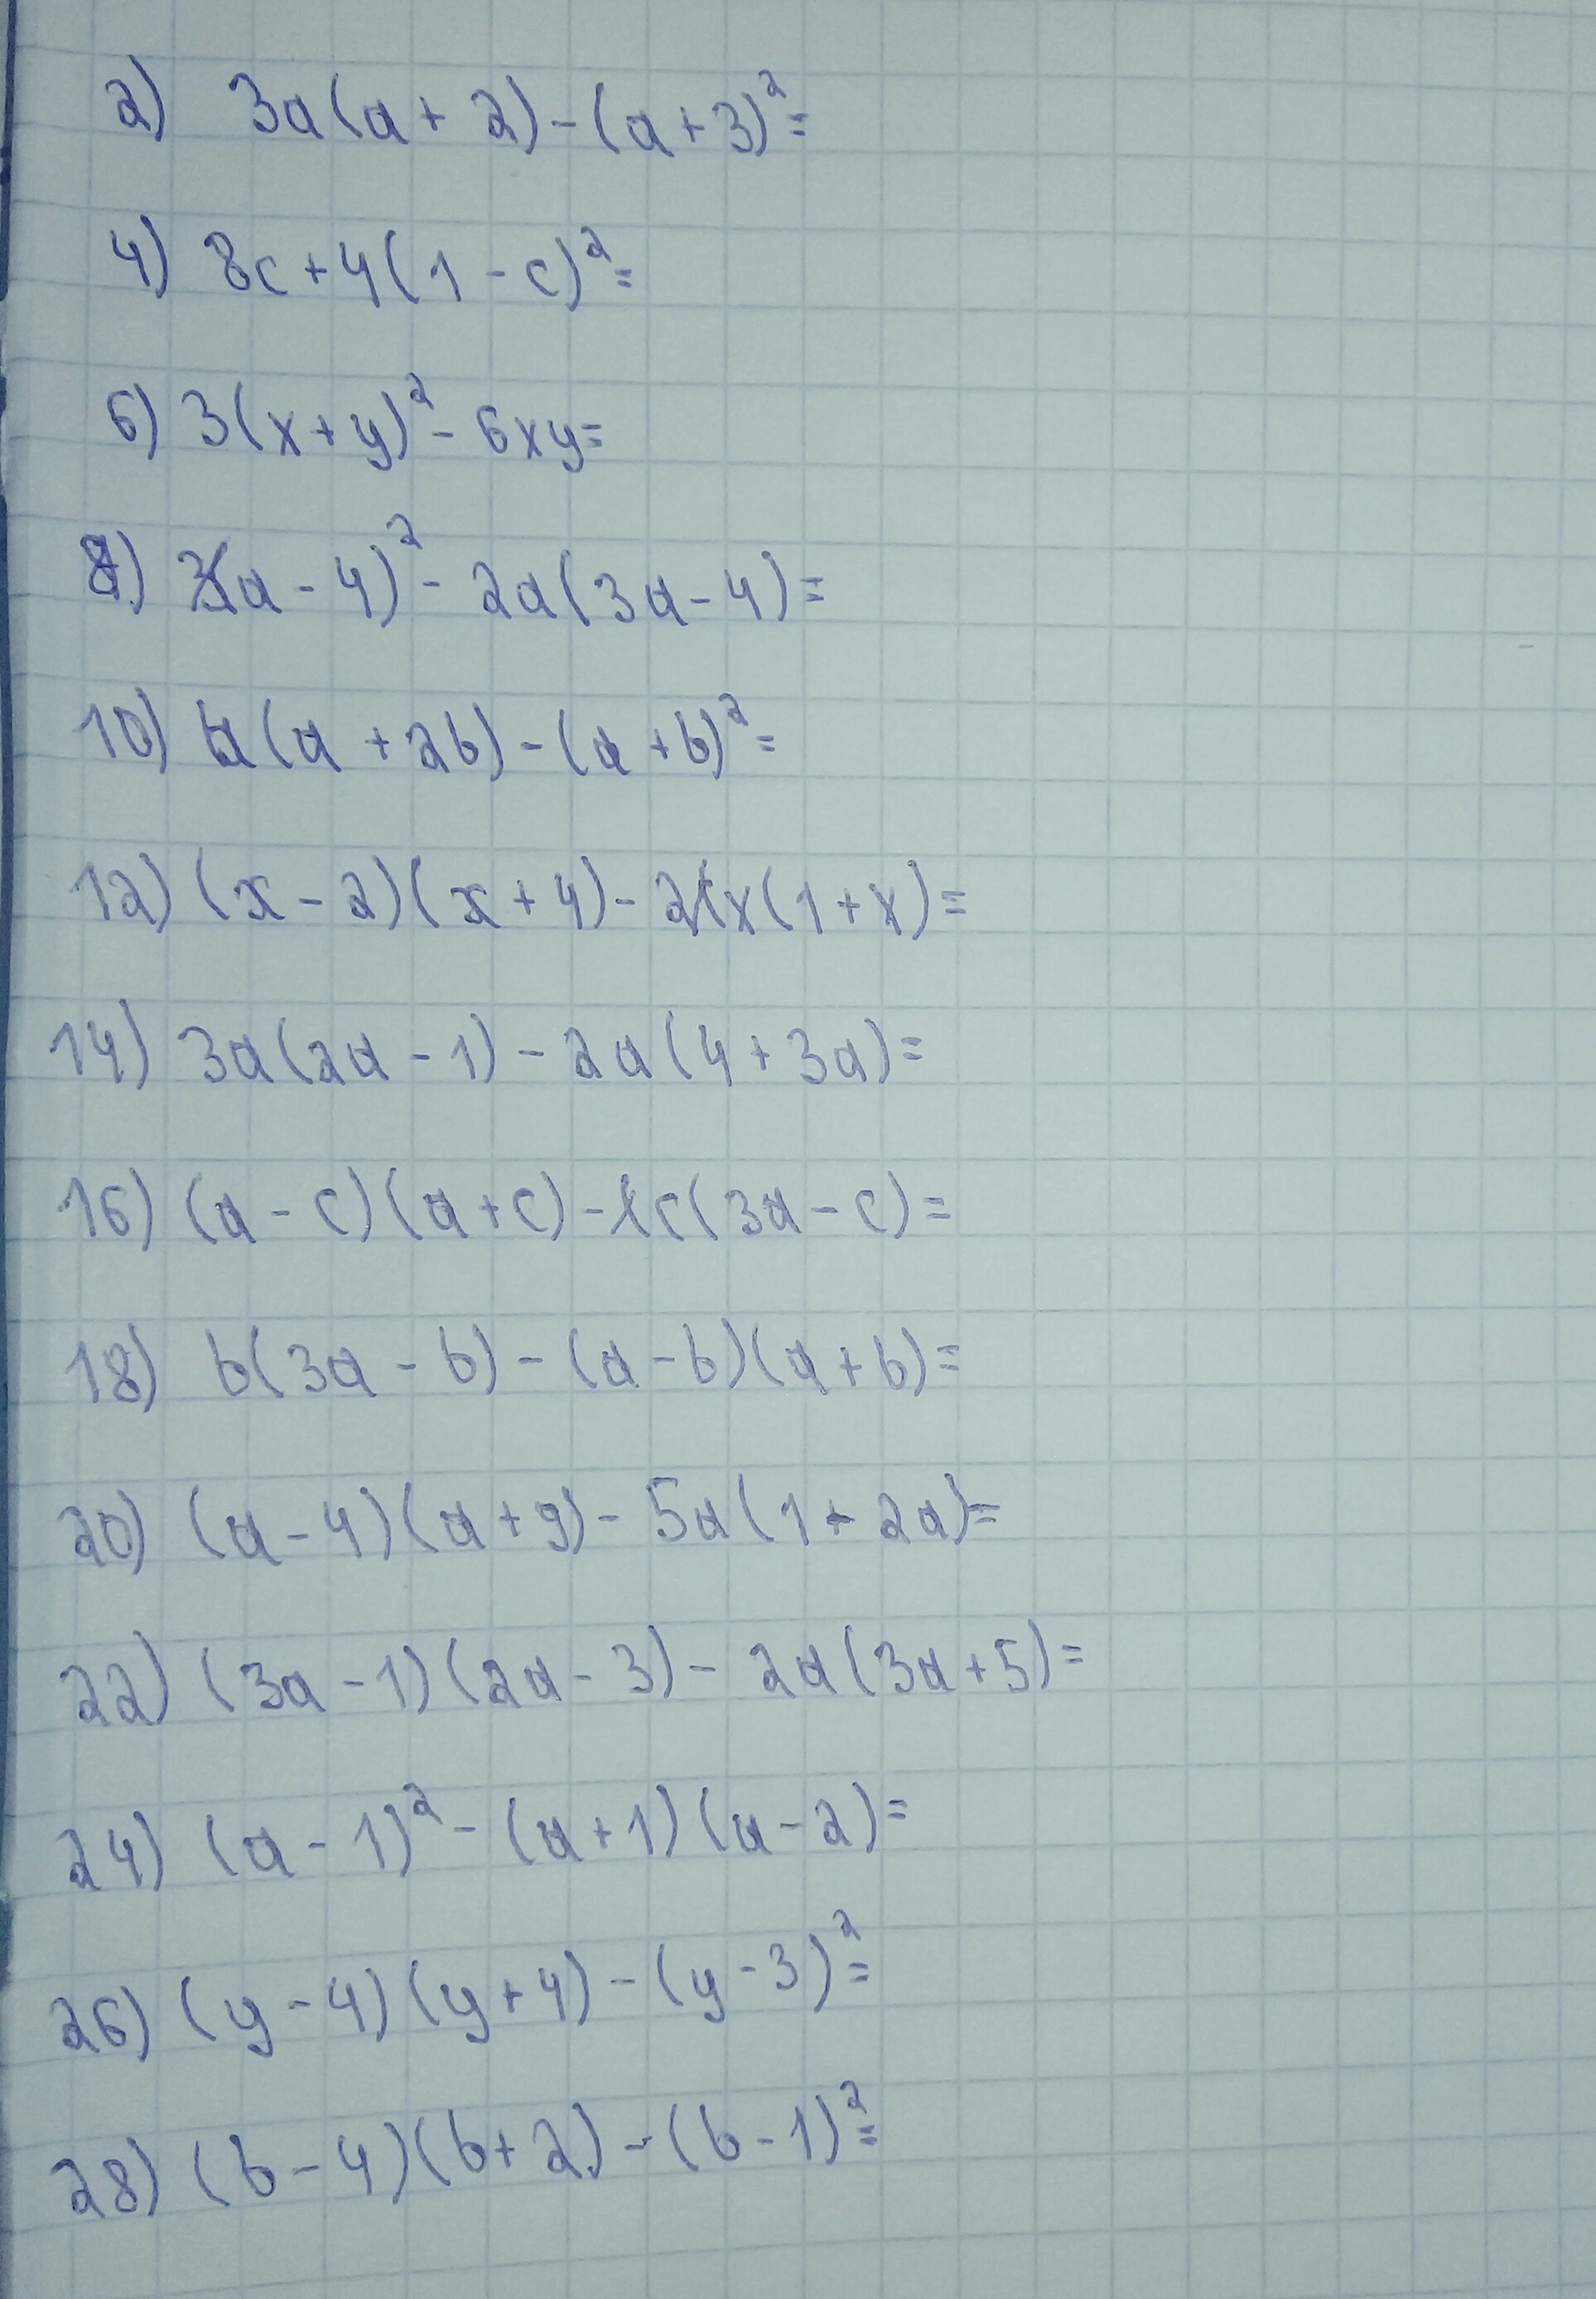 2) 3a(a + 2) - (a + 3)² =
4) 8c + 4(1 - c)² =
6) 3(x + y)² - 6xy =
8) (a - 4)² - 2a(3a - 4) =
10) (a + 2b) - (a + b)² =
12) (x - 2)(x + 4) - 2x(1 + x) =
14) 3a(2a - 1) - 2a(4 + 3a) =
16) (a - c)(a + c) - c(3a - c) =
18) b(3a - b) - (a - b)(a + b) =
20) (a - 4)(a + 9) - 5a(1 + 2a) =
22) (3a - 1)(2a - 3) - 2a(3a + 5) =
24) (a - 1)² - (a + 1)(a - 2) =
26) (y - 4)(y + 4) - (y - 3)² =
28) (b - 4)(b + 2) - (b - 1)² =